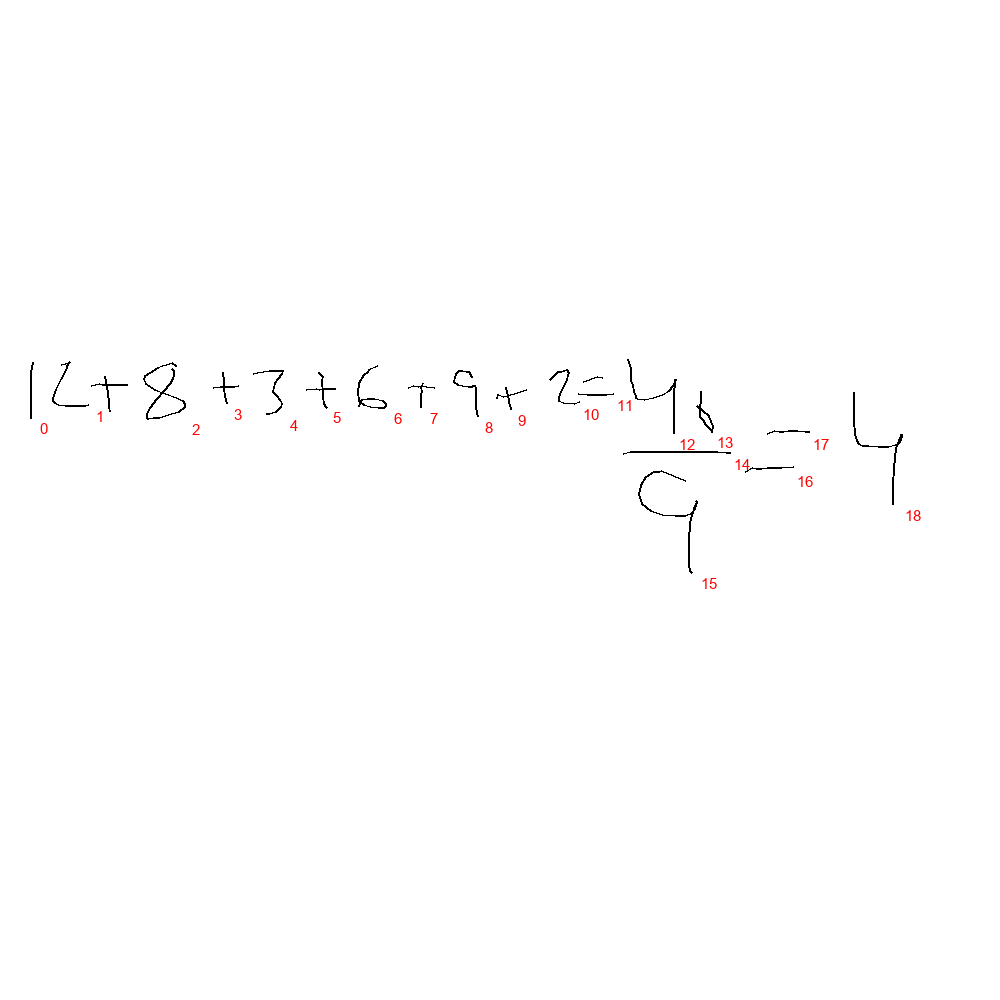 12+8+3+6+9+2=40
9
=4
0 1 2 3 4 5 6 7 8 9 10 11 12 13 14 15 16 17 18